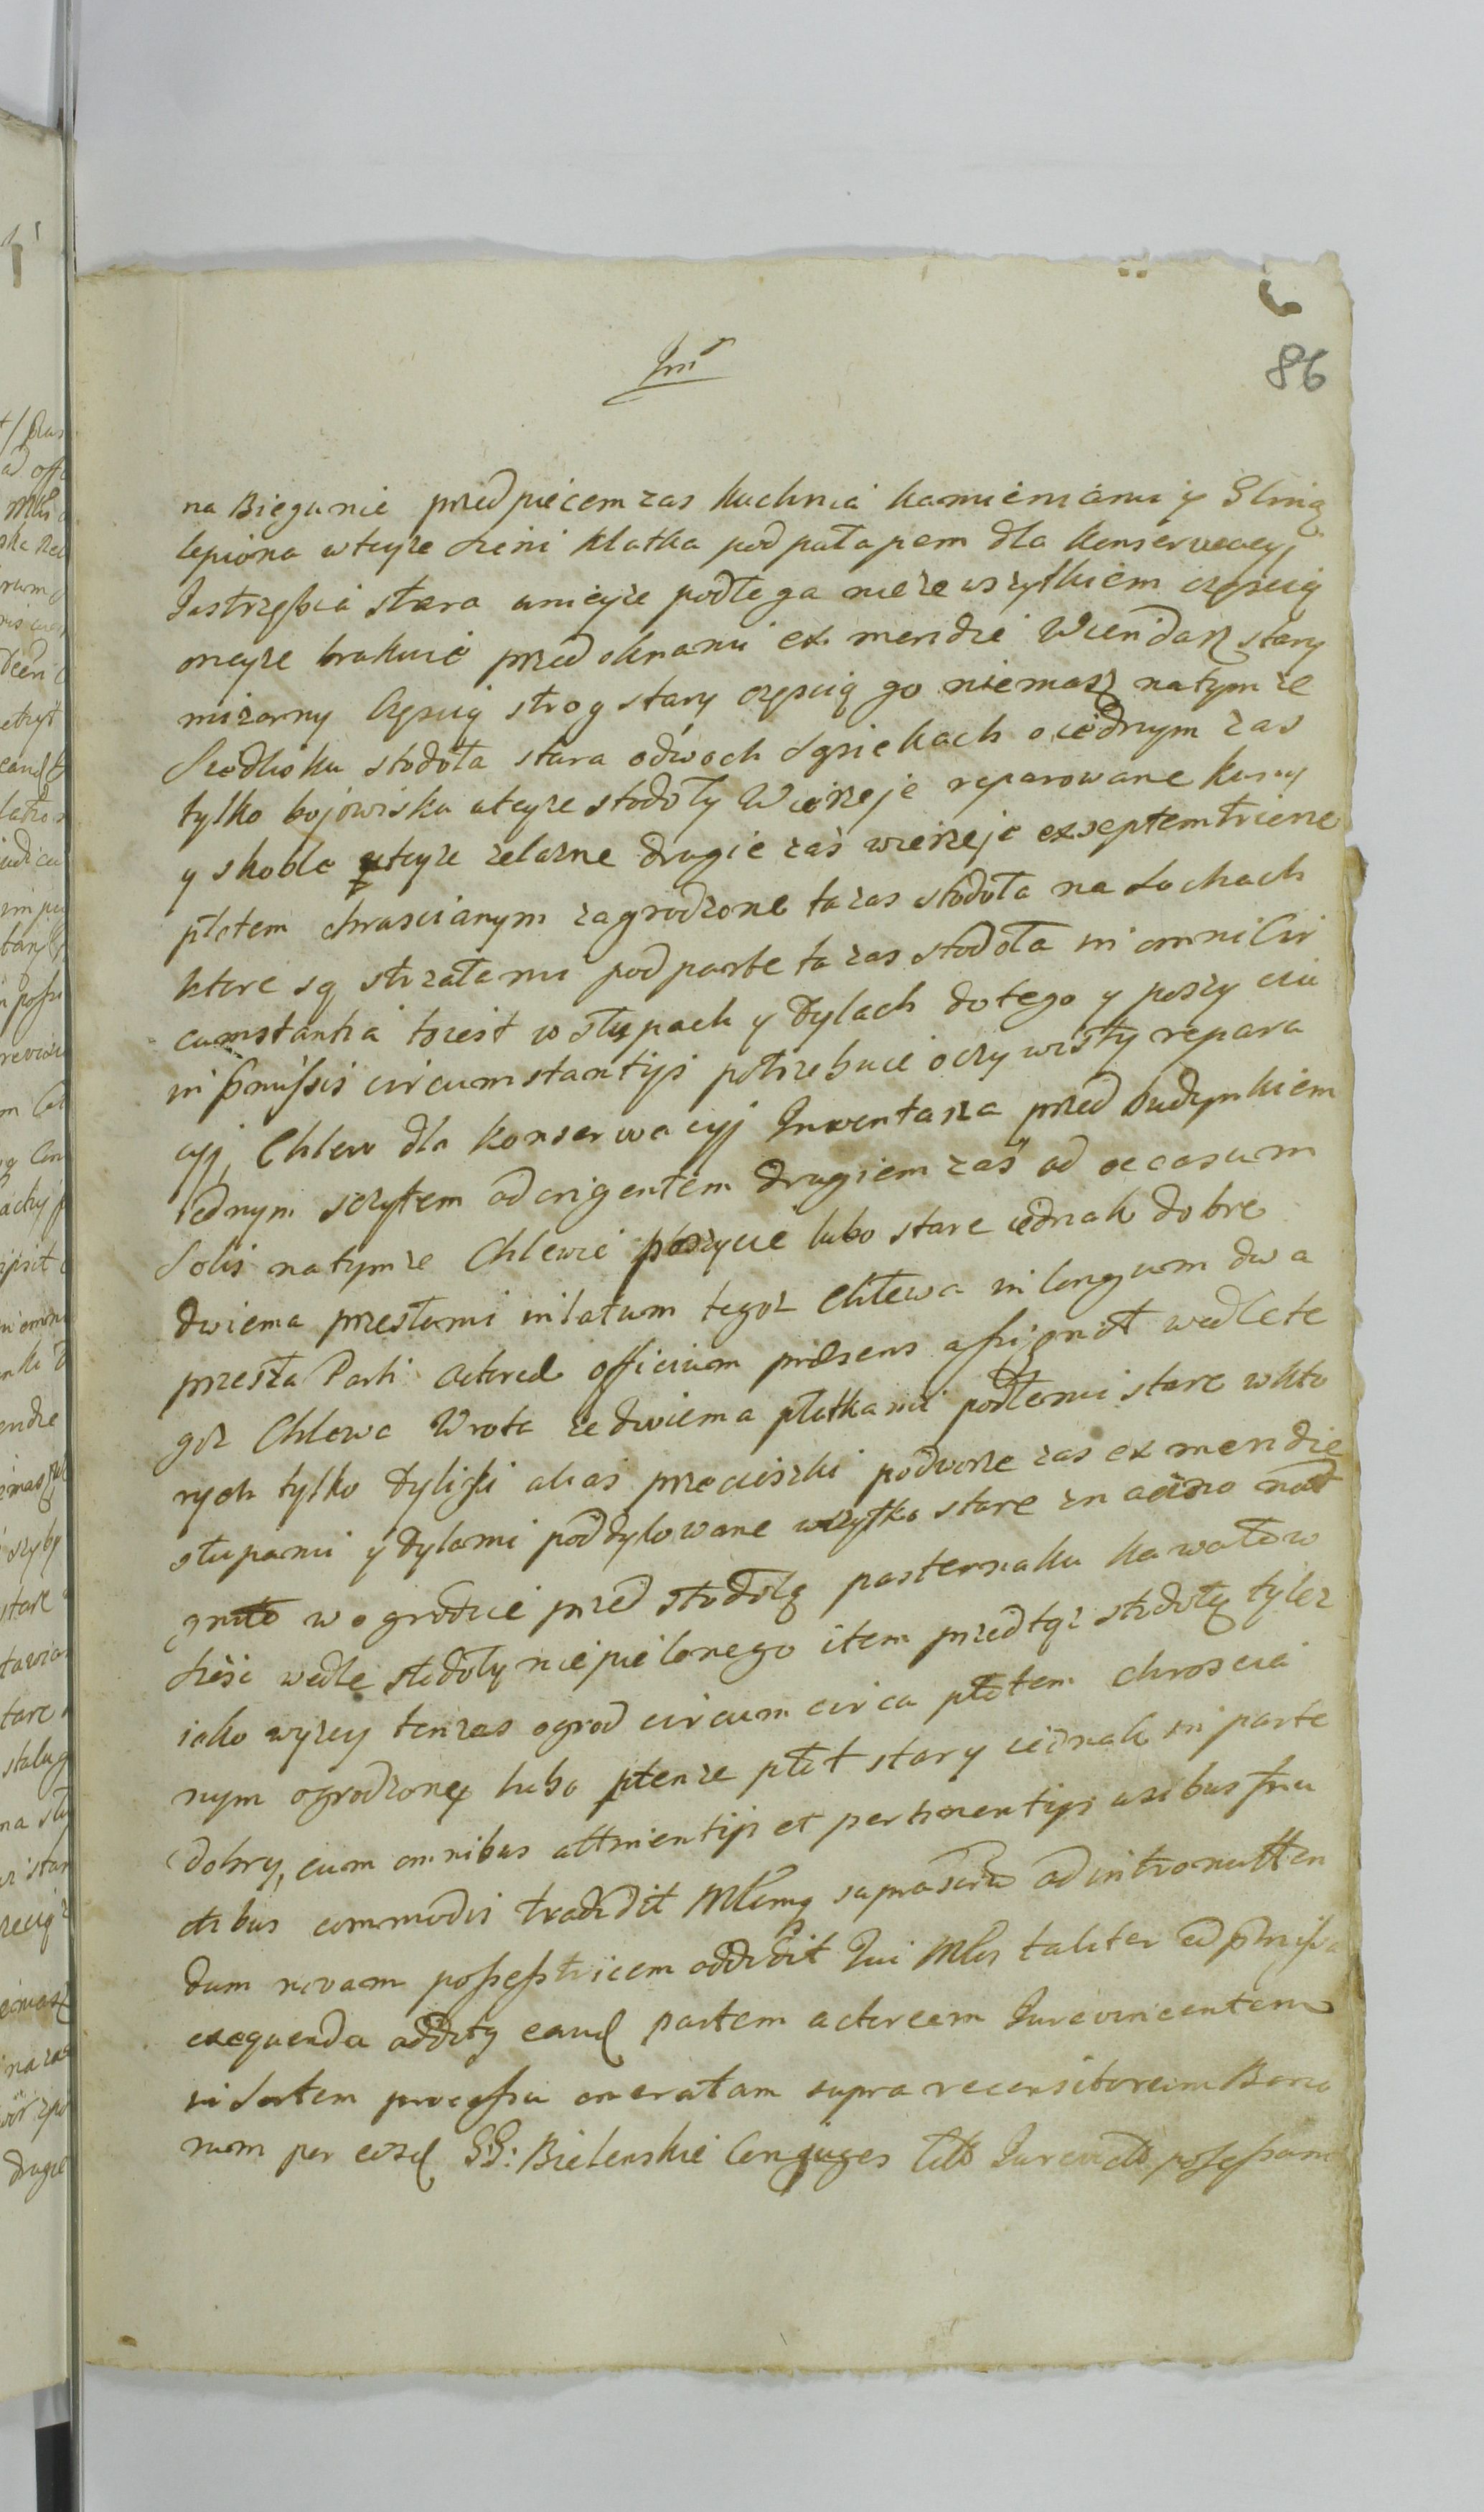 86
na Biegunie przed piecem zas kuchnia kamieniami y Gliną
lepiona wteyze sieni klatka pod pułapem dla konserwacyj
Jastrzębia stara wnieyze podłega nieze wszytkiem częscią
oneyze brakuie przed oknami ex meridie Wiendarz stary
mizerny częscią strog stary częscią go niemasz natymze
Siedlisku stodoła stara odwoch Sąsiekach o iednym zas
tylko bojowisku uteyze stodoły Wierzeje reparowane kuny
y skoble uteyze zelazne drugie zaś wierzeje ex septemtrione
płotem chrascianym zagrodzone tazas stodoła na Sochach
ktore są strzałami pod parte tazas stodoła in omni Cir
cumstantia toiest w słupach y dylach dotego y poszyciu
in pmissis circumstantijs potrzebuie oczywisty repara
cyj, Chlew dla konserwacyj Inwentarza przed budynkiem
iednym sczytem ad origentem drugiem zaś ad occasum
Solis natymze Chlewie poszycie lubo stare iednak dobre
dwiema przesłami in latum tegoz Chlewa in longum dwa
przesła Parti Actoreae officium praesens assignat wedle te
goz Chlewa Wrota ze dwiema płatkami podłemi stare wkto
rych tylko dyliski alias przeciszki podworze zas ex meridie
słupami y dylami poddylowane wszytko stare znaczno nad
gniło w ogrodzie przed stodołą pasternaku kawałow
sześć wedle stodoły niepielonego item przed tąz stodołą tylez
iako wyzey tenzas ogrod circum circa płotem chroscia
nym ogrodzony lubo tenze płot stary iednak in parte
dobry, cum omnibus attinentijs et pertinentijs usibus fru
ctibus commodis tradidit supra ad intromitten
dam novam possessricem addidit Qui taliter ad pmissa
exequenda partem actoream Jurevincentem
in Sortem processu oneratam supra recensitorum Bono
rum per eosd GG: Bielenskie Conjuges